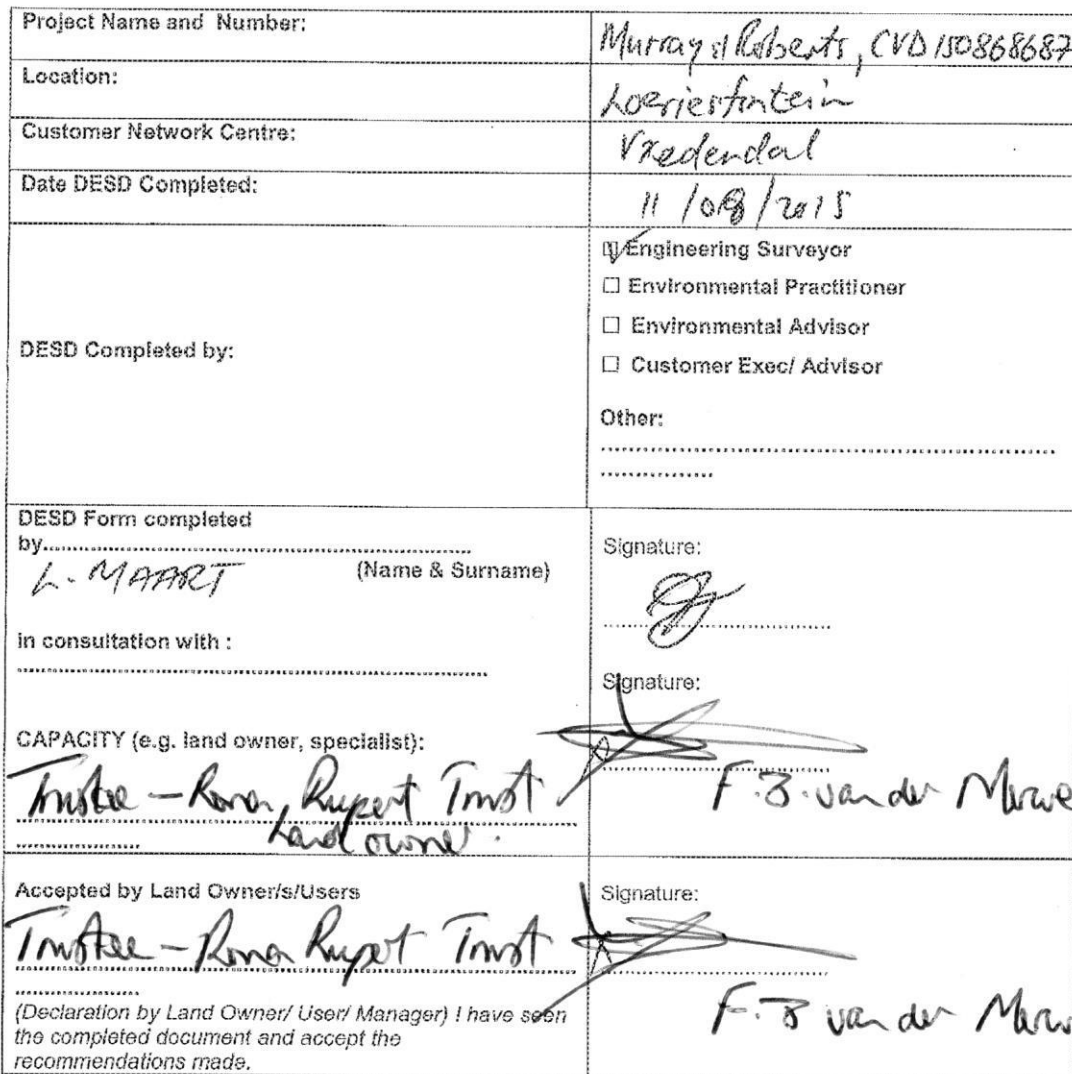 Project Name and Number:
Murray & Roberts, CVD150868687
Location:
Loeriesfontein
Customer Network Centre:
Vredendal
Date DESD Completed:
11 /08/2015
DESD Completed by:
Engineering Surveyor
☐ Environmental Practitioner
☐ Environmental Advisor
☐ Customer Exec/ Advisor
Other:
DESD Form completed
by
L. MAART (Name & Surname)
Signature:
in consultation with :
Signature:
CAPACITY (e.g. land owner, specialist):
Trustee – Rupert Trust
Land owner.
F.B. van der Merwe
Accepted by Land Owner/s/Users
Trustee – Trust
Signature:
(Declaration by Land Owner/ User/ Manager) I have seen
the completed document and accept the
recommendations made.
F.B van der Merw